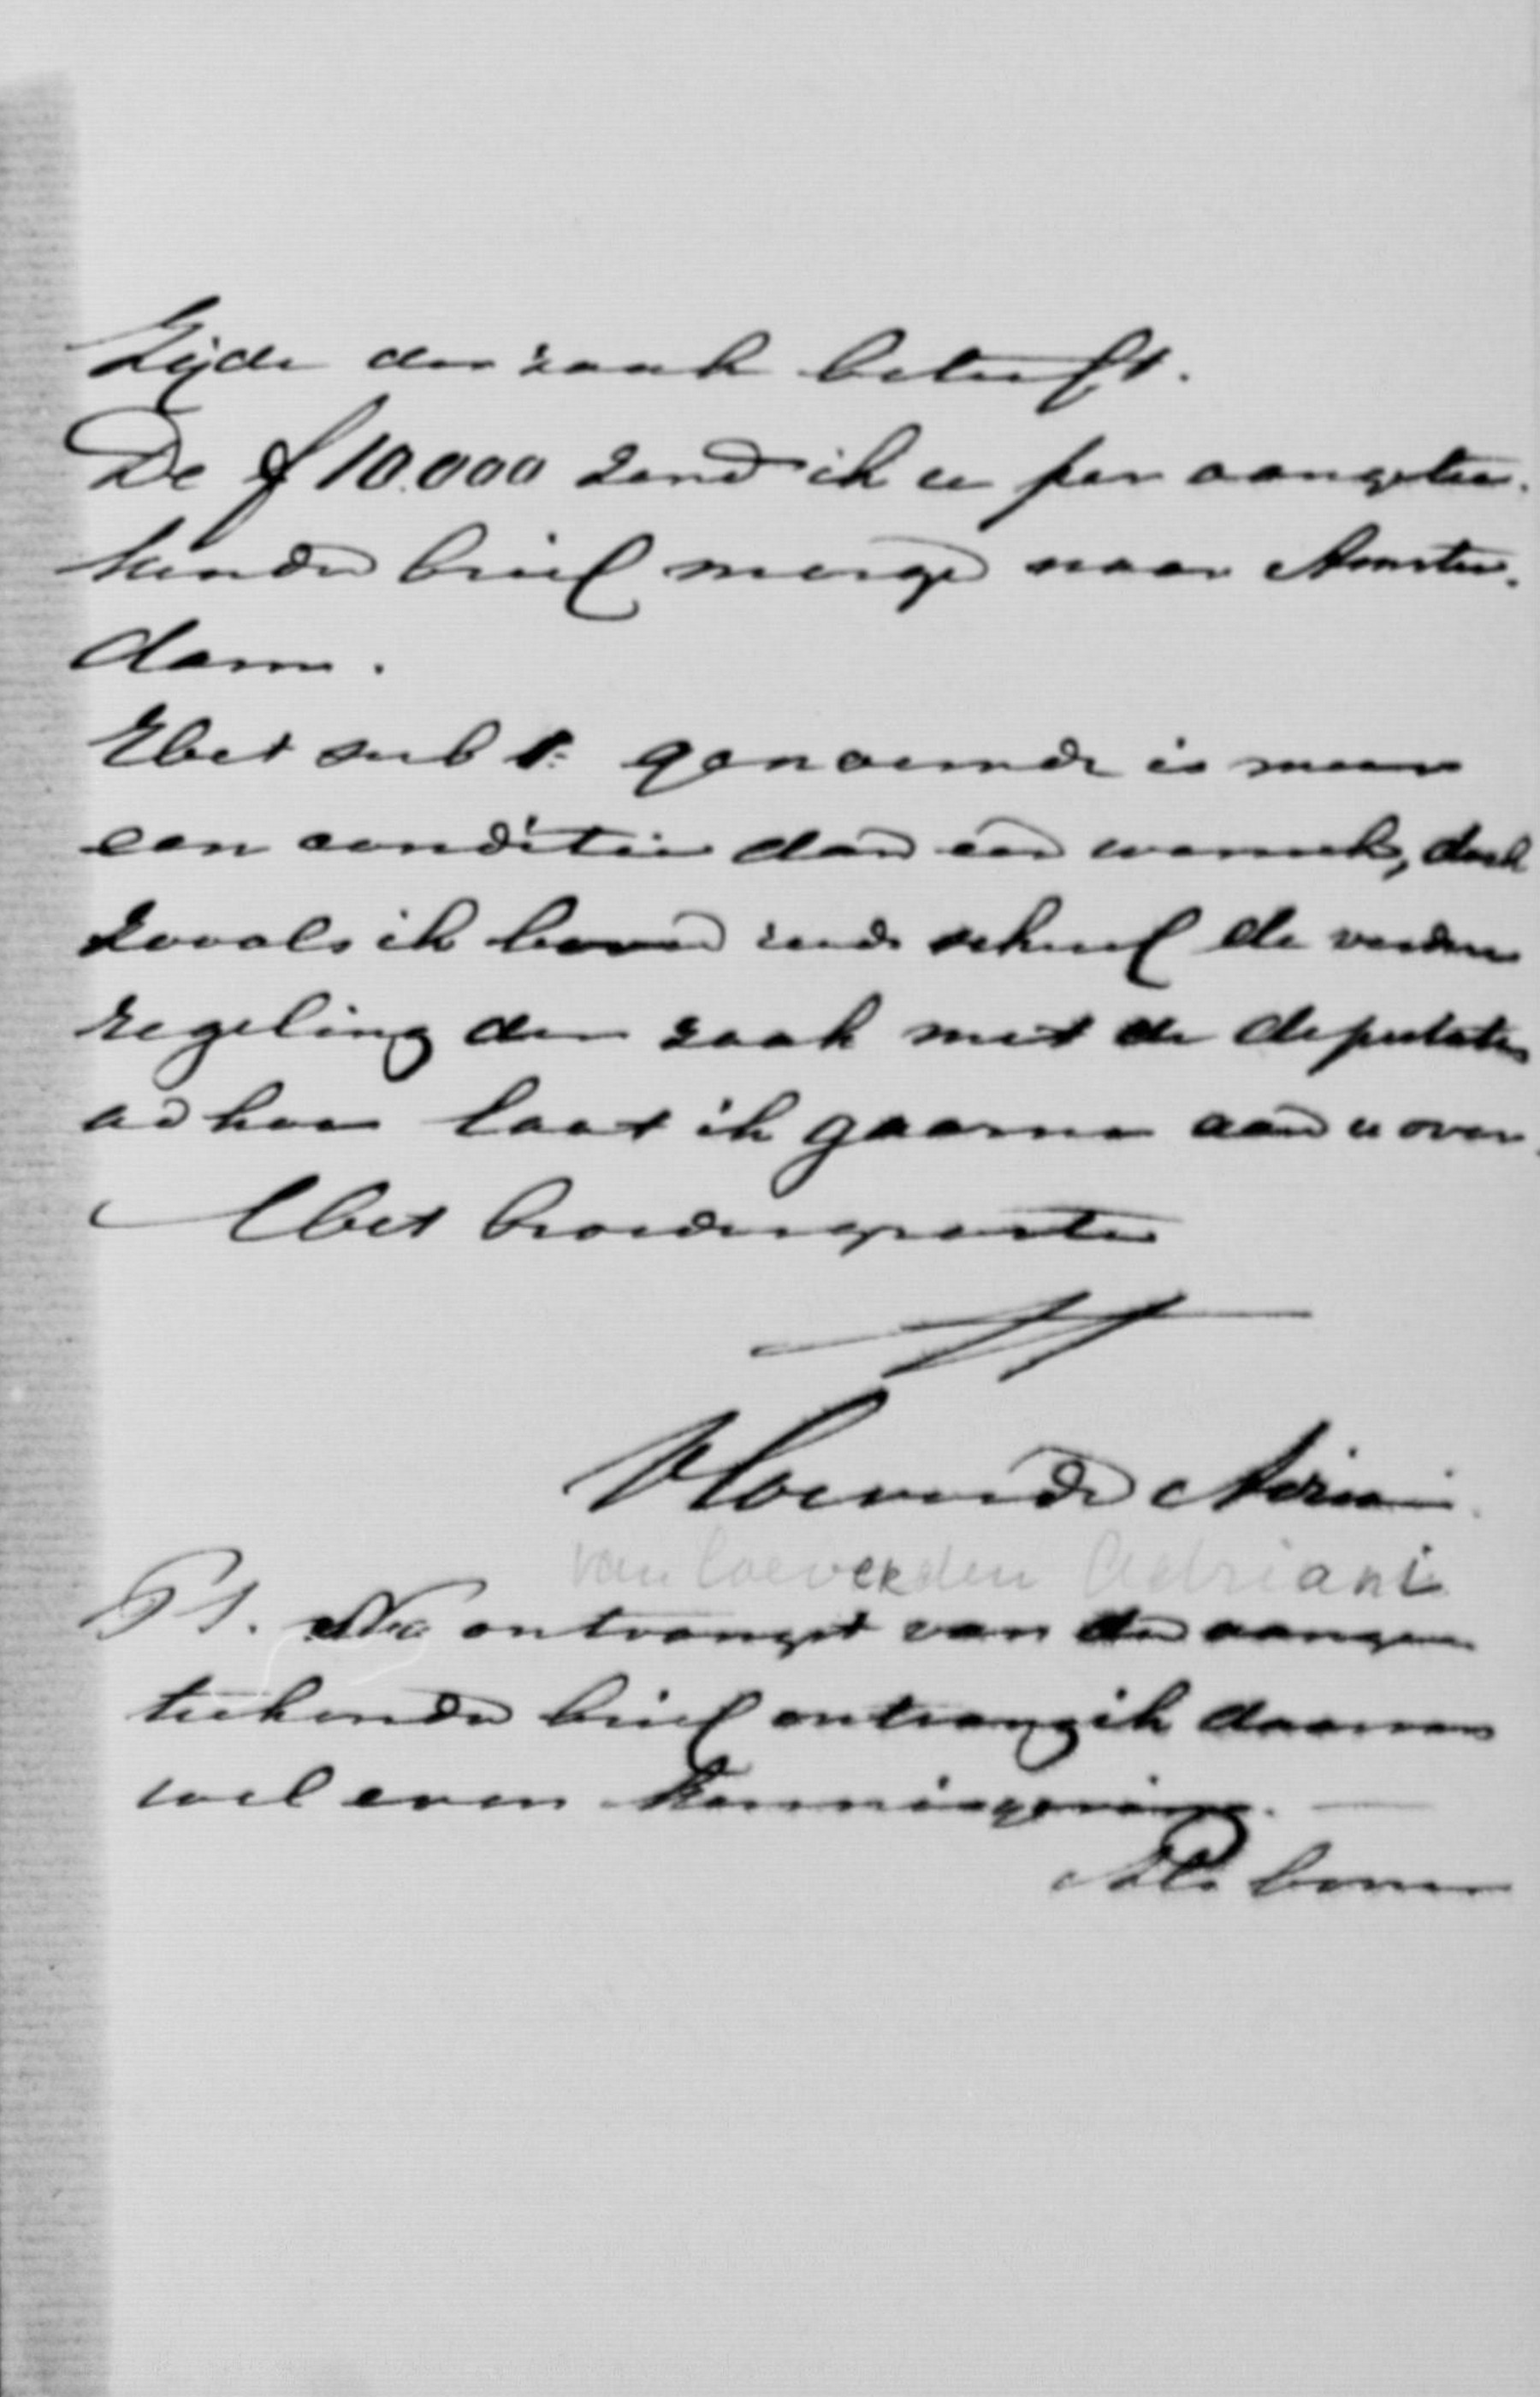 Zijde der zaak betreft.
De f 10.000 zend ik u per aangetee-
kenden brief morgen naar Amster-
dam.
Het sub 1: genoemde is meer
een conditie dan een wensch, doch
zooals ik boven reeds schreef de verdere
regeling der zaak met de deputaten
ad hoc laat ik gaarne aan u over.
Met broedergroeten
VCoeverden Adriani
van Coeverden Adriani
PS. Na ontvangst van den aange-
teekenden brief ontvang ik daarvan
wel even kennisgeving. —
Als boven